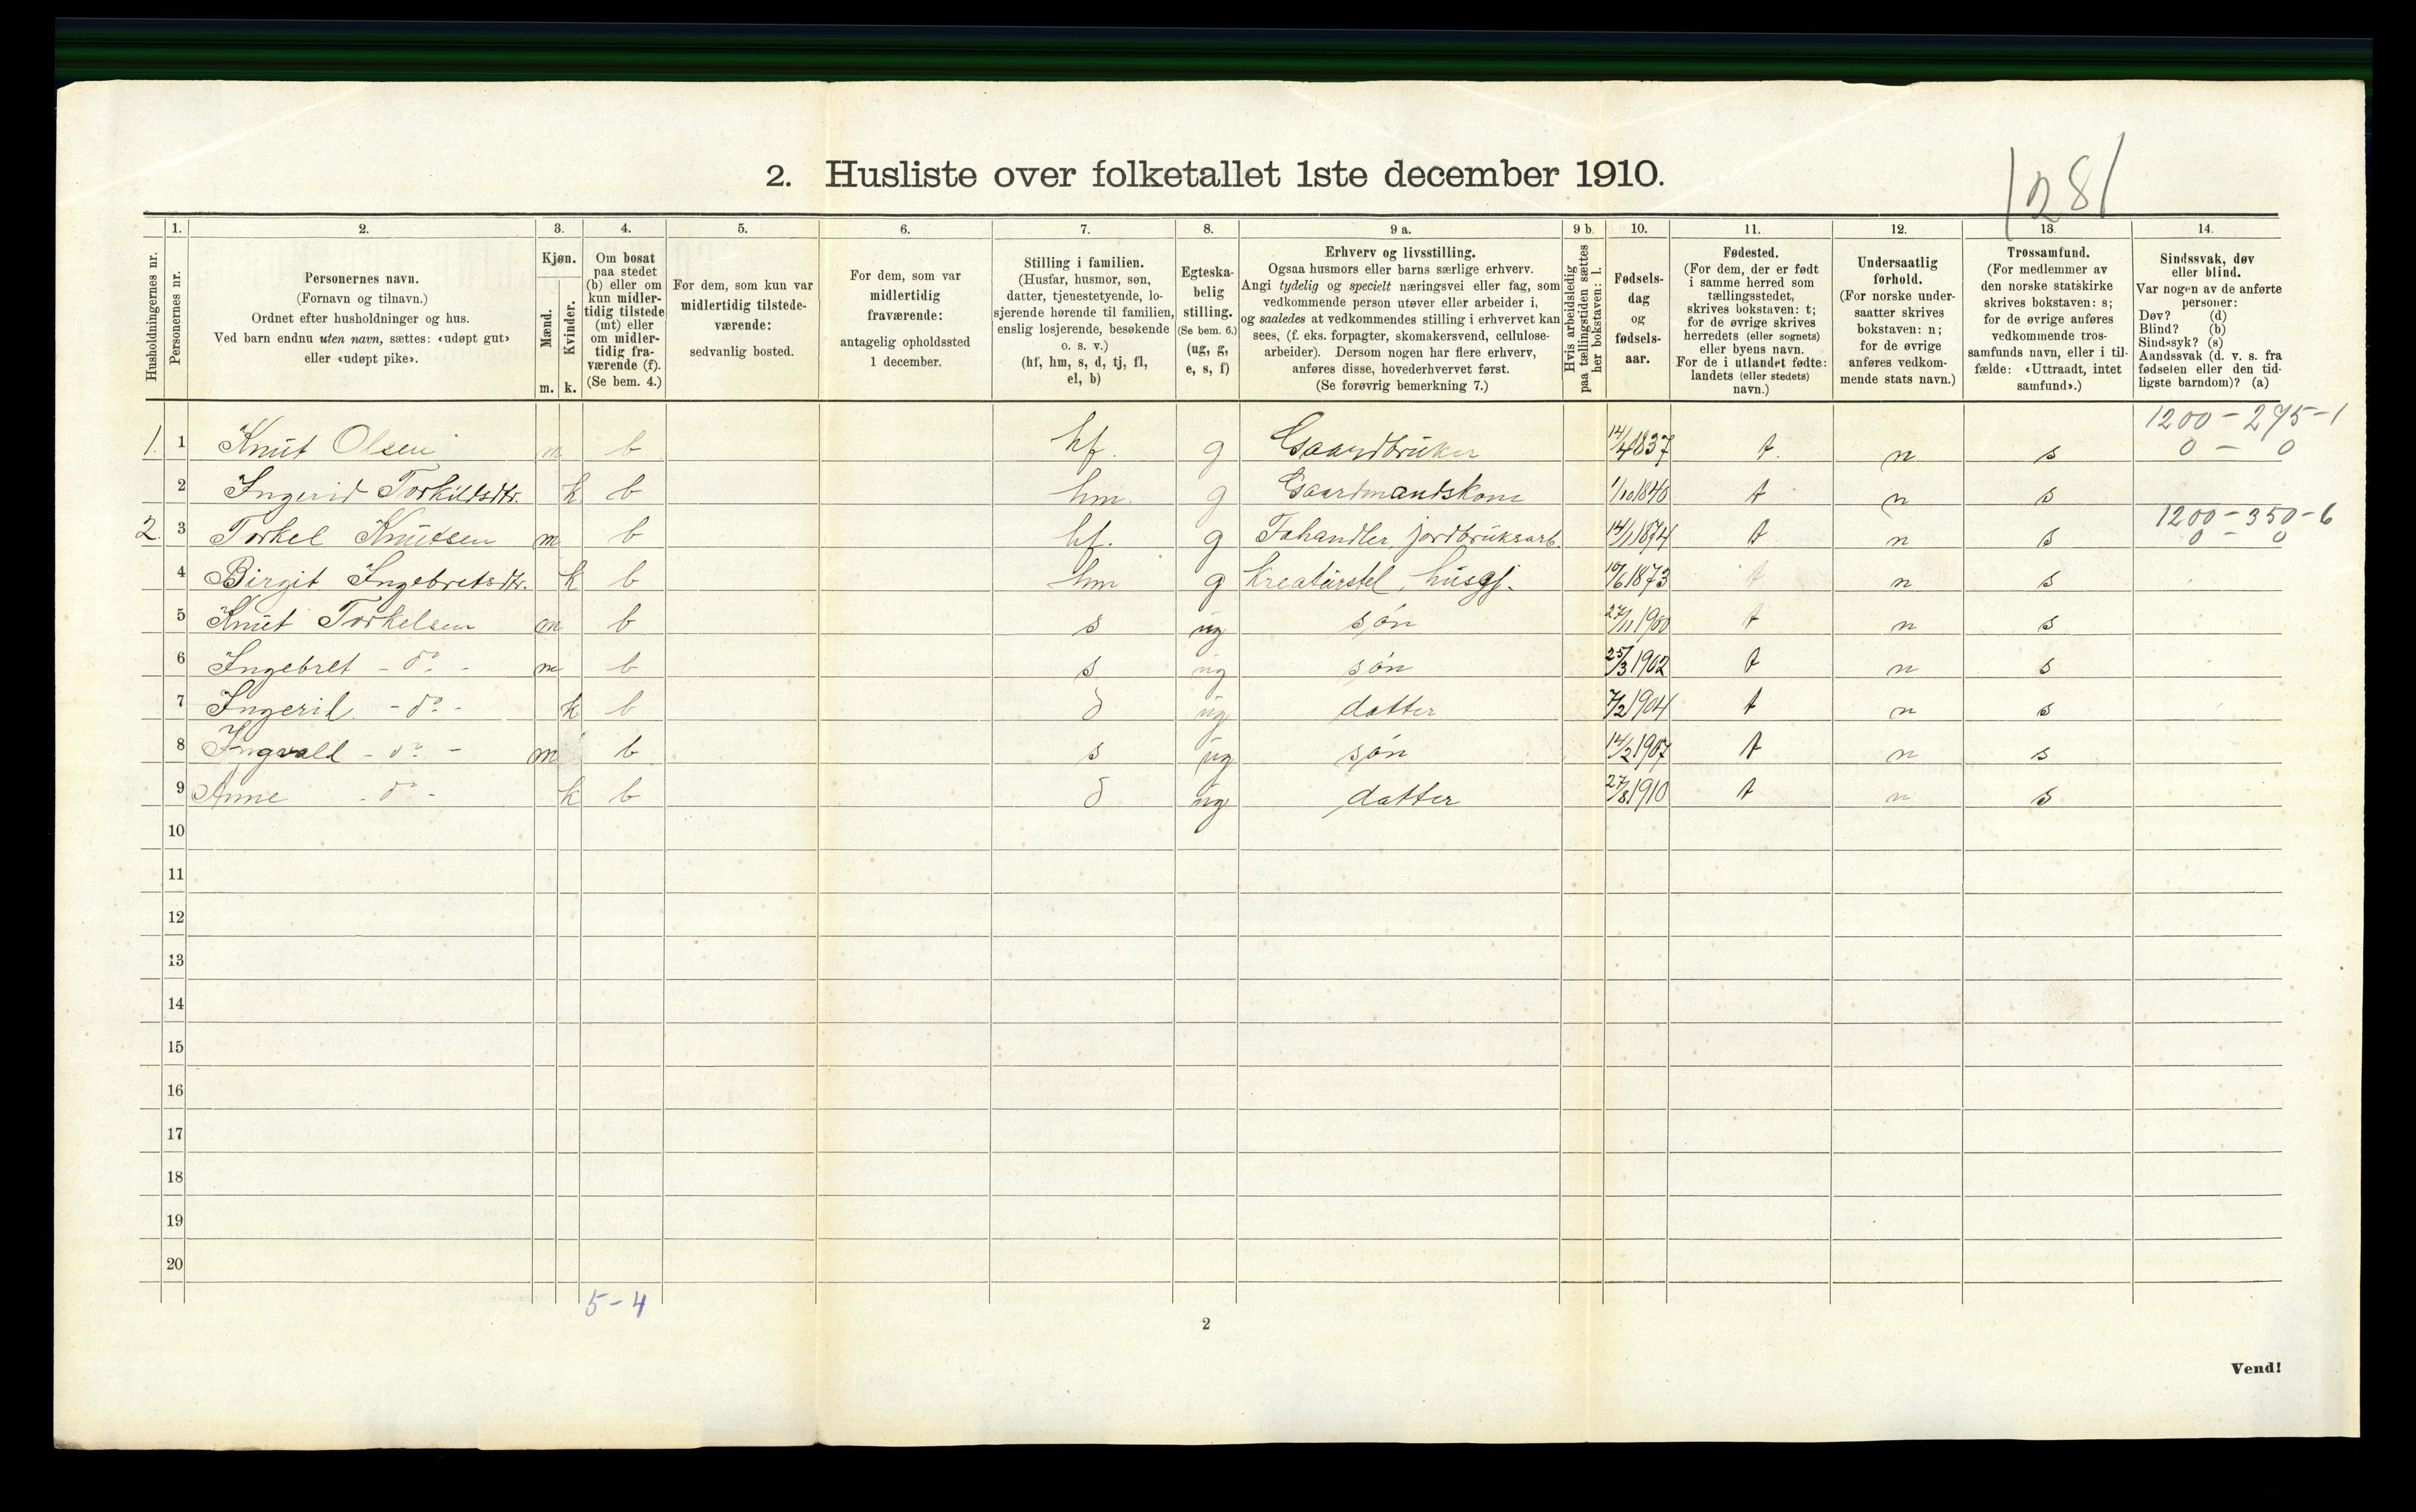 2. Husliste over folketallet 1ste december 1910.
|281
Husholdningernes nr.
1.
Personernes nr.
2.
Personernes navn.
(Fornavn og tilnavn.)
Ordnet efter husholdninger og hus.
Ved barn endnu uten navn, sættes: «udøpt gut»
eller «udøpt pike».
3.
Kjøn.
Mænd.
m.
Kvinder.
k.
4.
Om bosat
paa stedet
(b) eller om
kun midler-
tidig tilstede
(mt) eller
om midler-
tidig fra-
værende (f).
(Se bem. 4.)
5.
For dem, som kun var
midlertidig tilstede-
værende:
sedvanlig bosted.
6.
For dem, som var
midlertidig
fraværende:
antagelig opholdssted
1 december.
7.
Stilling i familien.
(Husfar, husmor, søn,
datter, tjenestetyende, lo-
sjerende hørende til familien,
enslig losjerende, besøkende
o. s. v.)
(hf, hm, s, d, tj, fl,
el, b)
8.
Egteska-
belig
stilling.
(Se bem. 6.)
(ug, g,
e, s, f)
9 a.
Erhverv og livsstilling.
Ogsaa husmors eller barns særlige erhverv.
Angi tydelig og specielt næringsvei eller fag, som
vedkommende person utøver eller arbeider i,
og saaledes at vedkommendes stilling i erhvervet kan
sees, (f. eks. forpagter, skomakersvend, cellulose-
arbeider). Dersom nogen har flere erhverv,
anføres disse, hovederhvervet først.
(Se forøvrig bemerkning 7.)
9 b.
Hvis arbeidsledig
paa tællingstiden sættes
her bokstaven: l.
10.
Fødsels-
dag
og
fødsels-
aar.
11.
Fødested.
(For dem, der er født
i samme herred som
tællingsstedet,
skrives bokstaven: t;
for de øvrige skrives
herredets (eller sognets)
eller byens navn.
For de i utlandet fødte:
landets (eller stedets)
navn.)
12.
Undersaatlig
forhold.
(For norske under-
saatter skrives
bokstaven: n;
for de øvrige
anføres vedkom-
mende stats navn.)
13.
Trossamfund.
(For medlemmer av
den norske statskirke
skrives bokstaven: s;
for de øvrige anføres
vedkommende tros-
samfunds navn, eller i til-
fælde: «Uttraadt, intet
samfund».)
14.
Sindssvak, døv
eller blind.
Var nogen av de anførte
personer:
Døv? (d)
Blind? (b)
Sindssyk? (s)
Aandssvak (d. v. s. fra
fødselen eller den tid-
ligste barndom)? (a)
1200 - 275 - 1
1. 1 Knut Olsen m b hf. g Gaardbruker 14/4 1837 t. n s 0 - 0
2 Ingerid Torkildsdtr. k b hm. g Gaardmandskone 1/10 1840 t n s
1200 - 350 - 6
2. 3 Torkel Knutsen m b hf. g Fehandler, jordbruksarb. 14/1 1874 t n s 0 - 0
4 Birgit Ingebretsdtr. k b hm g Kreaturstel, husgj. 10/6 1873 t n s
5 Knut Torkelsen m b s ug søn 27/11 1900 t n s
6 Ingebret - do - m b s ug søn 25/3 1902 t n s
7 Ingerid - do - k b d ug datter 7/2 1904 t n s
8 Ingvald - do - m b s ug søn 14/2 1907 t n s
9 Anne - do - k b d ug datter 27/8 1910 t n s
10
11
12
13
14
15
16
17
18
19
20
5-4
2
Vend!